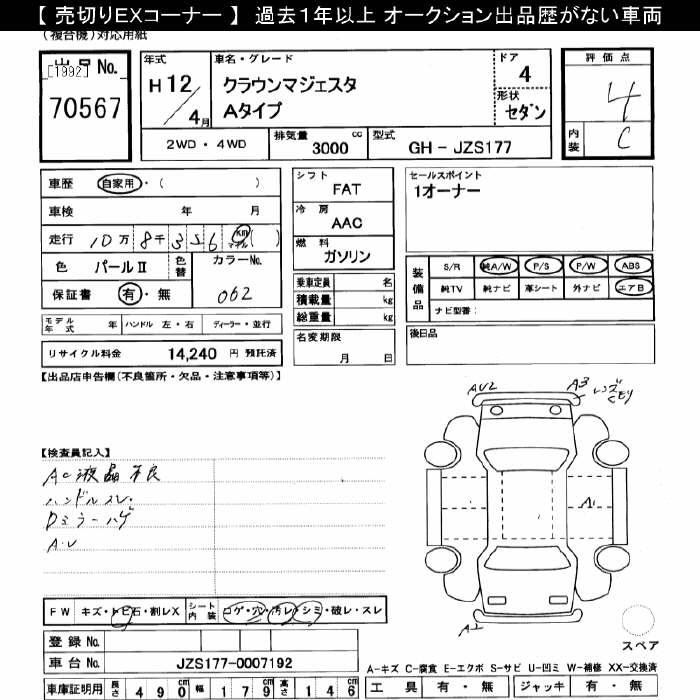 【 売切りEXコーナー 】 過去1年以上 オークション出品歴がない車両
(複合機)対応用紙
出品 No.
[1992]
70567
年式
H 12/4月
車名・グレード
クラウンマジェスタ
Aタイプ
ドア
4
形状
セダン
評価点
4
内装
C
2WD・4WD
排気量 3000 cc
型式 GH - JZS177
車歴 自家用・( )
車検 年 月
走行 10万 8千 3 5 6 km マイル ( )
色 パールⅡ 色替 カラーNo.
062
保証書 有・無
モデル年式 年 ハンドル 左・右 ディーラー・並行
リサイクル料金 14,240 円 預託済
シフト
FAT
冷房
AAC
燃料
ガソリン
乗車定員 名
積載量 kg
総重量 kg
名変期限
月 日
セールスポイント
1オーナー
装備品
S/R 純A/W P/S P/W ABS
純TV 純ナビ 革シート 外ナビ エアB
ナビ型番:
後日品
【出品店申告欄(不良箇所・欠品・注意事項等)】
AU2
A3
レンズ
くもり
A1
A2
【検査員記入】
AC液晶不良
ハンドルスレ
Dミラーハゲ
A・U
FW キズ・トビ石・割レX シート内装 コゲ・穴・汚レ・シミ・破レ・スレ
登録 No.
車台 No. JZS177-0007192
車庫証明用 長さ 490 cm 幅 179 cm 高さ 146 cm
スペア
A-キズ C-腐食 E-エクボ S-サビ U-凹ミ W-補修 XX-交換済
工具 有・無 ジャッキ 有・無